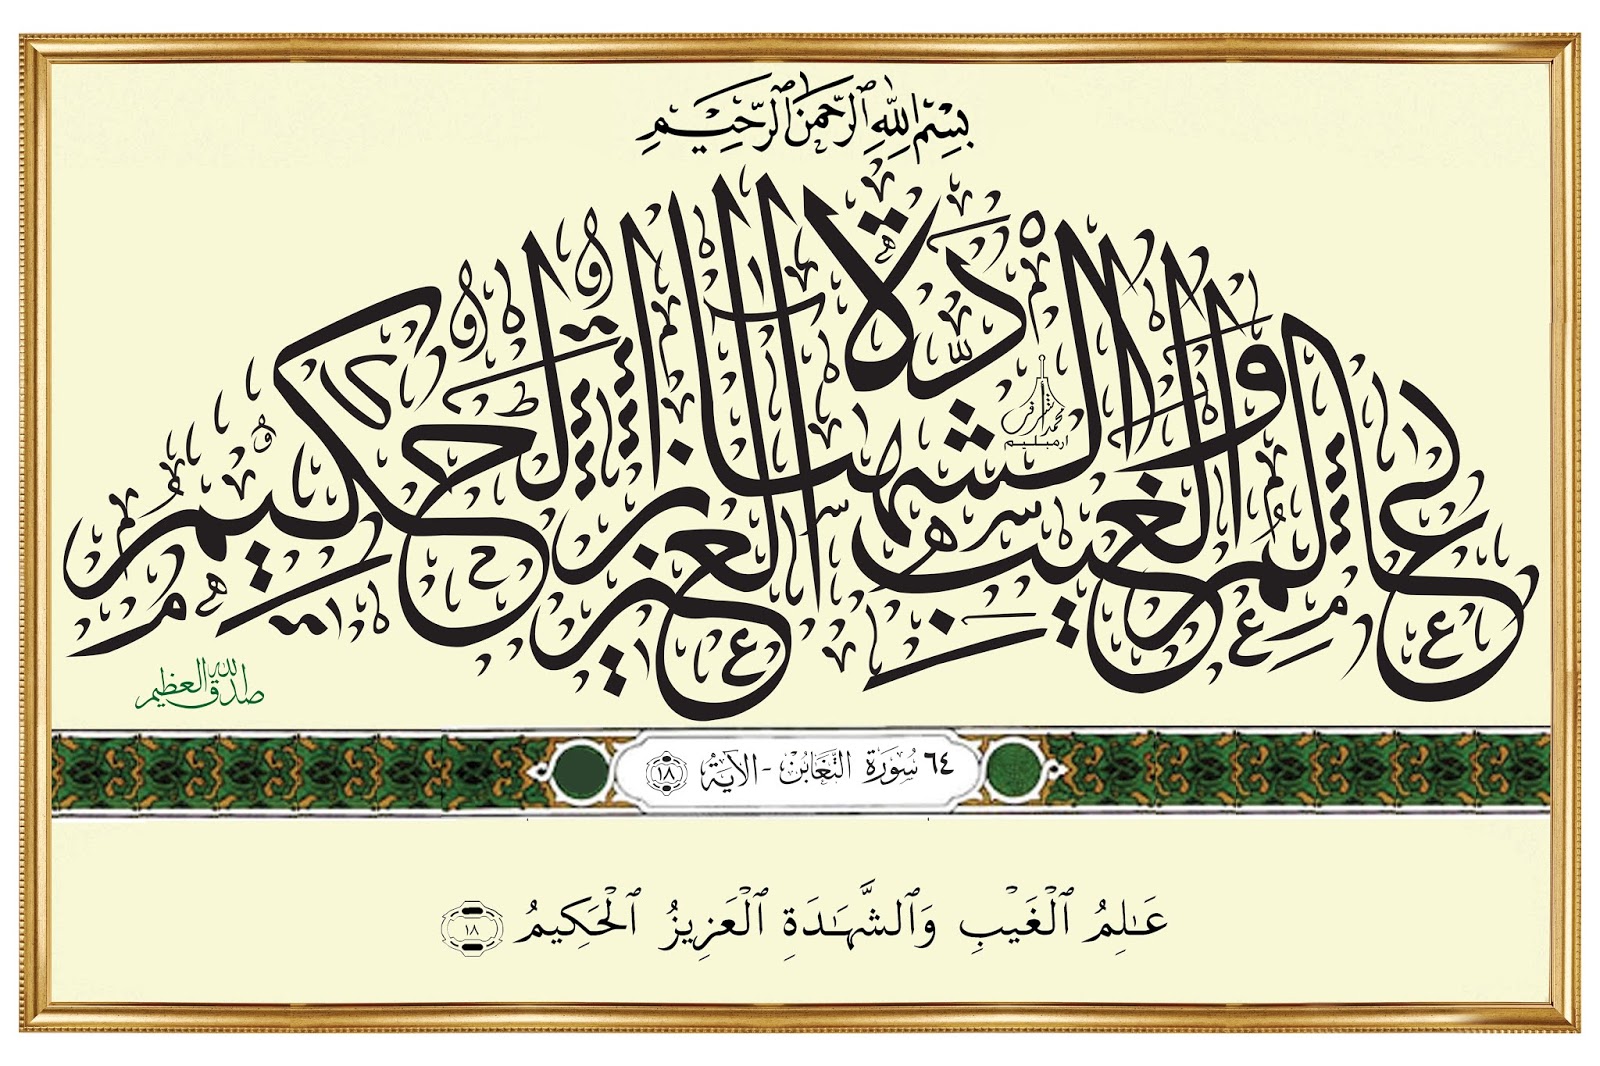 بِسْمِ اللَّهِ الرَّحْمَنِ الرَّحِيمِ
عالم الغيب والشهادة العزيز الحكيم
صدق الله العظيم
٦٤ سُورَة التَّغَابُن - الآيَة ١٨
عَـٰلِمُ ٱلْغَيْبِ وَٱلشَّهَـٰدَةِ ٱلْعَزِيزُ ٱلْحَكِيمُ ١٨